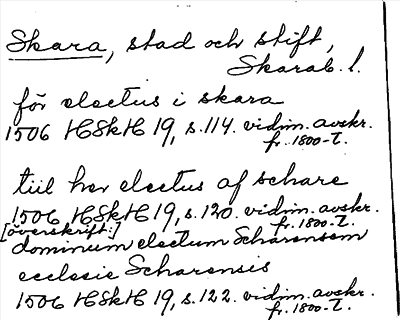 Skara, stad och stift,
Skarab. l.
för electus i skara
1506 HSkH 19, s. 114. vidim. avskr.
fr. 1800-t.
tiil her electus af schare
1506 HSkH 19, s. 120. vidim. avskr.
fr. 1800-t.
[överskrift:]
dominum electum Scharensem
ecclesie Scharensis
1506 HSkH 19, s. 122. vidim. avskr.
fr. 1800-t.